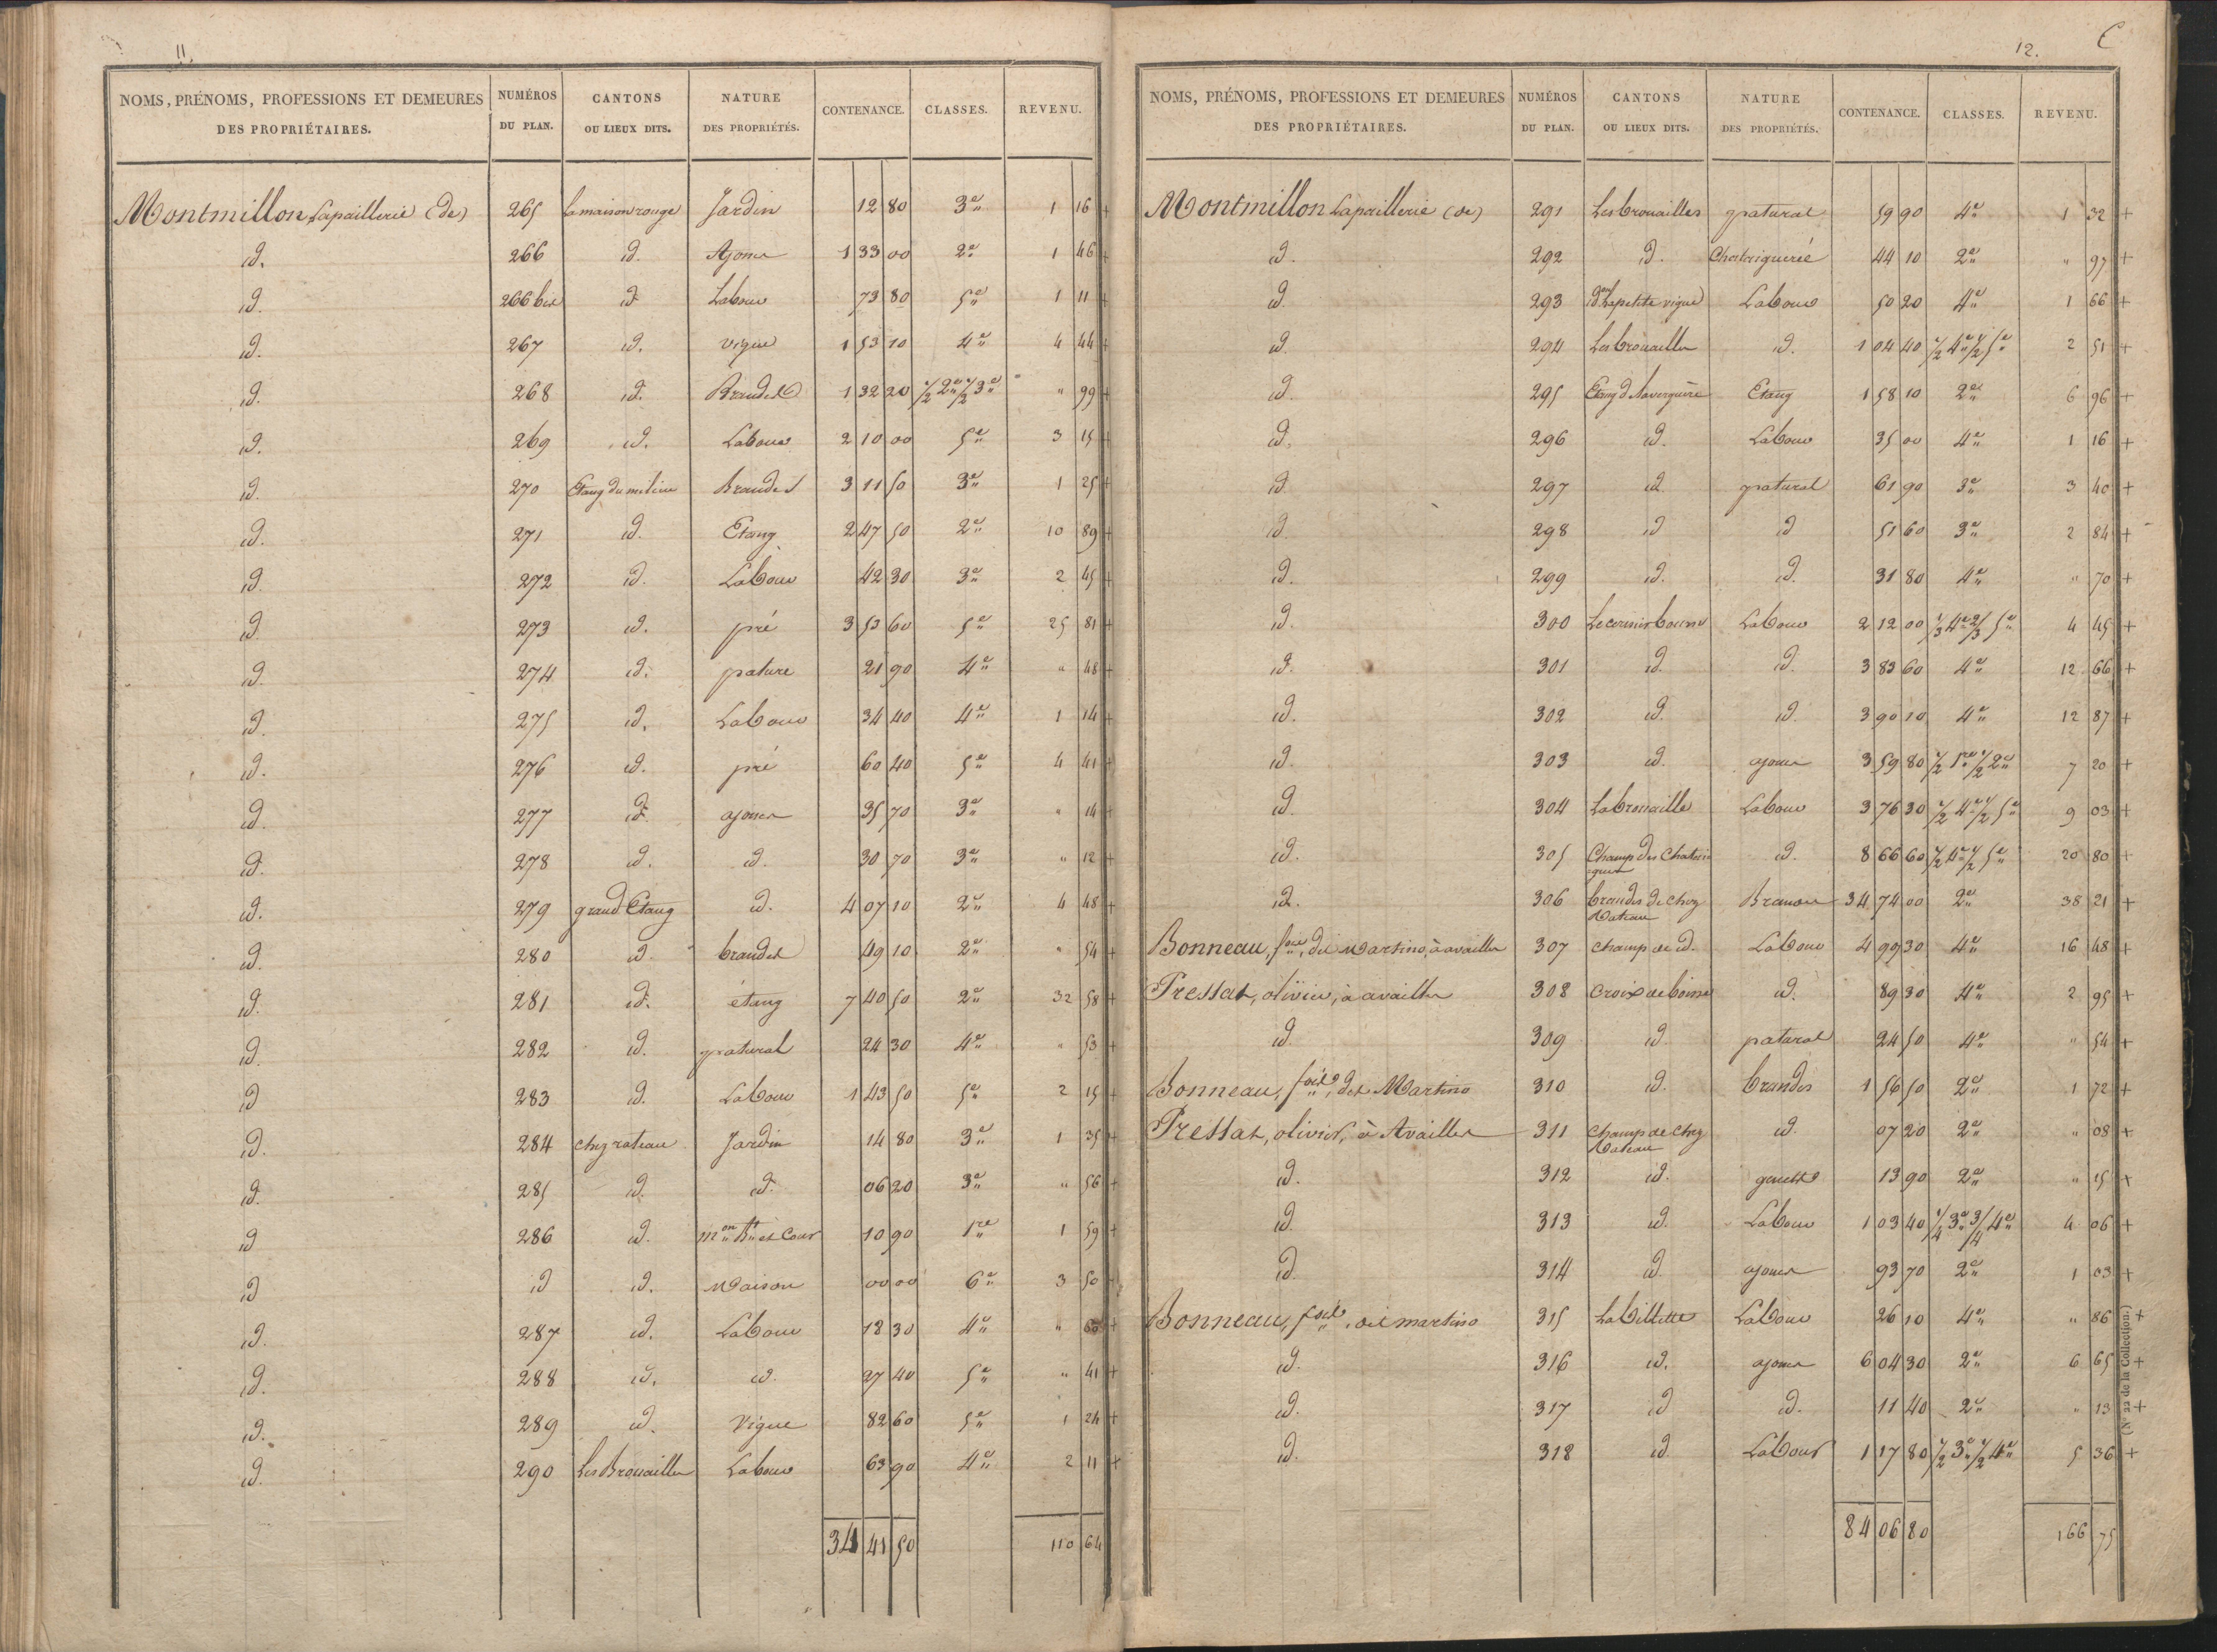 11.
NOMS, PRÉNOMS, PROFESSIONS ET DEMEURES DES PROPRIÉTAIRES. NUMÉROS DU PLAN. CANTONS OU LIEUX DITS. NATURE DES PROPRIÉTÉS. CONTENANCE. CLASSES. REVENU.
Montmillon Lapaillerie (de) 265 La maison rouge Jardin 12 80 3e 1 16 +
id. 266 id. Ajoncs 1 33 00 2e 1 46 +
id. 266 bis id. Labour 73 80 5e 1 11 +
id. 267 id. vigne 1 53 10 4e 4 44 +
id. 268 id. Brandes 1 32 20 1/2 2e 1/2 3e " 99 +
id. 269 id. Labour 2 10 00 5e 3 15 +
id. 270 Etang du milieu Brandes 3 11 50 3e 1 25 +
id. 271 id. Etang 2 47 50 2e 10 89 +
id. 272 id. Labour 42 30 3e 2 45 +
id. 273 id. pré 3 53 60 5e 25 81 +
id. 274 id. pature 21 90 4e " 48 +
id. 275 id. Labour 34 40 4e 1 14 +
id. 276 id. pré 60 40 5e 4 41 +
id. 277 id. ajoncs 35 70 3e " 14 +
id. 278 id. id. 30 70 3e " 12 +
id. 279 grand Etang id. 4 07 10 2e 4 48 +
id. 280 id. brandes 49 10 2e " 54 +
id. 281 id. étang 7 40 50 2e 32 58 +
id. 282 id. patural 24 30 4e " 53 +
id 283 id. Labour 1 43 50 5e 2 15 +
id. 284 chez rateau Jardin 14 80 3e 1 35 +
id. 285 id. id. 06 20 3e " 56 +
id 286 id. mon Bt et Cour 10 90 1re 1 59 +
id id id. Maison 00 00 6e 3 50 +
id. 287 id. Labour 18 30 4e " 60 +
id. 288 id. id. 27 40 5e " 41 +
id. 289 id. Vigne 82 60 5e 1 24 +
id. 290 Les Brouailles Labour 63 90 4e 2 11 +
34 41 50 110 64
12. C
NOMS, PRÉNOMS, PROFESSIONS ET DEMEURES DES PROPRIÉTAIRES. NUMÉROS DU PLAN. CANTONS OU LIEUX DITS. NATURE DES PROPRIÉTÉS. CONTENANCE. CLASSES. REVENU.
Montmillon Lapaillerie (de) 291 Les brouailles patural 59 90 4e 1 32 +
id. 292 id. Chataignerie 44 10 2e " 97 +
id. 293 La petite vigne Labour 50 20 4e 1 66 +
id 294 Les brouailles id. 1 04 40 1/2 4e 1/2 5e 2 51 +
id. 295 Etang Etang 1 58 10 2e 6 96 +
id. 296 id. Labour 35 00 4e 1 16 +
id. 297 id patural 61 90 3e 3 40 +
id. 298 id id 51 60 3e 2 84 +
id. 299 id. id. 31 80 4e " 70 +
id. 300 Labour 2 12 00 1/3 4e 2/3 5e 4 45 +
id. 301 id. id. 3 83 60 4e 12 66 +
id. 302 id. id. 3 90 10 4e 12 87 +
id. 303 id. ajoncs 3 59 80 1/2 1re 1/2 2e 7 20 +
id. 304 La brouaille Labour 3 76 30 1/2 4e 1/2 5e 9 03 +
id. 305 Champ des Chataigners id. 8 66 60 1/2 4e 1/2 5e 20 80 +
id. 306 brandes de chez Rateau 34 74 00 2e 38 21 +
Bonneau, fois, dit Martino, à availles 307 champ de id. Labour 4 99 30 4e 16 48 +
Pressat, olivier, à availles 308 croix de id. 89 30 4e 2 95 +
id. 309 id patural 24 50 4e " 54 +
Bonneau, fois, dit Martino 310 id. brandes 1 56 50 2e 1 72 +
Pressat, olivier, à Availles 311 Champ de chez Rateau id. 07 20 2e " 08 +
id. 312 id. 13 90 2e " 15 +
id. 313 id. Labour 1 03 40 1/4 3e 3/4 4e 4 06 +
id. 314 id. ajoncs 93 70 2e 1 03 +
Bonneau, fois, dit martino 315 Labillette Labour 26 10 4e " 86 +
id. 316 id. ajoncs 6 04 30 2e 6 65 +
id. 317 id id. 11 40 2e " 13 +
id. 318 id. Labour 1 17 80 1/2 3e 1/2 4e 5 36 +
84 06 80 166 75
(N° 22 de la Collection.)